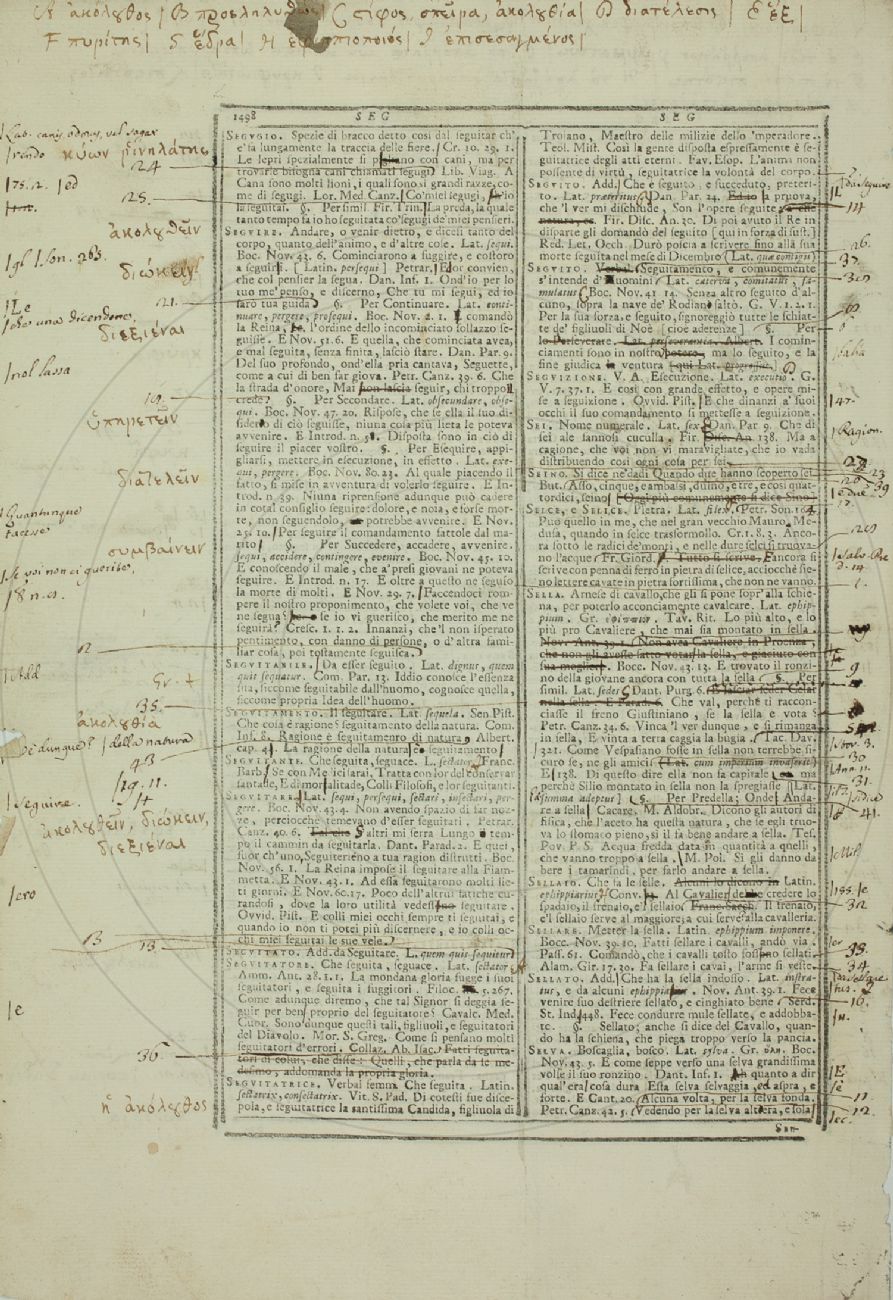 Α ἀκόλουθος | Β προεληλυθὼς | C στίφος, σπεῖρα, ἀκολουθία | D διατέλεσις | E ἕξ |
F πυρίτης | G ἕδρα | H ἐφιπποποιός | I ἐπισεσαγμένος |
1498 SEG
SEGUGIO. Spezie di bracco detto così dal seguitar ch'
e' fa lungamente la traccia delle fiere. Cr. 10. 29. 1.
Le lepri spezialmente si pigliano con cani, ma per
trovarle bisogna cani chiamati segugi. Lib. Viag. A
Cana sono molti lioni, i quali sono sì grandi razze, co-
me di segugi. Lor. Med. Canz. Co' miei segugi, io
la seguitai. §. Per simil. Fir. Trin. La preda, la quale
tanto tempo io ho seguitata co' segugi de' miei pensieri.
SEGUIRE. Andare, o venir dietro, e dicesi tanto del
corpo, quanto dell'animo, e d'altre cose. Lat. sequi.
Boc. Nov. 43. 6. Cominciarono a fuggire, e costoro
a seguirsi. [Latin. persequi] Petrar. Et lor convien,
che col pensier la segua. Dan. Inf. 1. Ond'io per lo
tuo me' penso, e discerno, Che tu mi segui, ed io
sarò tua guida. §. Per Continuare. Lat. conti-
nuare, pergere, prosequi. Boc. Nov. 2. 1. comandò
la Reina, l'ordine dello incominciato sollazzo se-
guisse. E Nov. 51. 6. E quella, che cominciata avea,
e mal seguita, senza finita, lasciò stare. Dan. Par. 9.
Del suo profondo, ond'ella pria cantava, Seguette,
come a cui di ben far giova. Petr. Canz. 39. 6. Che
la strada d'onore, Mai non lascia seguir, chi troppo il
crede? §. Per Secondare. Lat. obsecundare, obse-
qui. Boc. Nov. 47. 20. Rispose, che se ella il suo di-
siderio di ciò seguisse, niuna cosa più lieta le poteva
avvenire. E Introd. n. 51. Disposta sono in ciò di
seguire il piacer vostro. §. Per Eseguire, appi-
gliarsi, mettere in esecuzione, in effetto. Lat. exe-
qui, pergere. Boc. Nov. 80. 23. Al quale piacendo il
fatto, si mise in avventura di volerlo seguire. E In-
trod. n. 39. Niuna riprensione adunque può cadere
in cotal consiglio seguire: dolore, e noia, e forse mor-
te, non seguendolo, potrebbe avvenire. E Nov.
25. 10. Per seguire il comandamento fattole dal ma-
rito. §. Per Succedere, accadere, avvenire.
sequi, accidere, contingere, evenire. Boc. Nov. 45. 10.
E conoscendo il male, che a' presi giovani ne poteva
seguire. E Introd. n. 17. E oltre a questo ne seguìo
la morte di molti. E Nov. 29. 7. Faccendoci rom-
pere il nostro proponimento, che volete voi, che ve
ne segua? se io vi guerisco, che merito me ne
seguirà? Cresc. 1. 1. 2. Innanzi, che 'l non isperato
pentimento, con danno di persone, o d'altra fami-
liar cosa, poi tostamente seguisca.
SEGUITABILE. Da esser seguito. Lat. dignus, quem
quis sequatur. Com. Par. 13. Iddio conosce l'essenza
sua, siccome seguitabile dall'huomo, cognosce quella,
siccome propria Idea dell'huomo.
SEGUITAMENTO. Il seguitare. Lat. sequela. Sen. Pist.
Che cosa è ragione? seguitamento della natura. Com.
Inf. 8. Ragione è seguitamento di natura. Albert.
cap. 41. La ragione della natura è seguitamento
SEGUITANTE. Che seguita, seguace. L. sectator. Franc.
Barb. Se con Medici farai, Tratta con lor del conservar
santade, E di moralitade, Colli Filosofi, e lor seguitanti.
SEGUITARE. Lat. sequi, persequi, sectari, insectari, per-
gere. Boc. Nov. 43. 4. Non avendo spazio di far noz-
ze, perciocchè temevano d'esser seguitati. Petrar.
Canz. 40. 6. S'altri mi serra Lungo tem-
po il cammin da seguitarla. Dant. Parad. 2. E quei,
fuor ch'uno, Seguiterieno a tua ragion distrutti. Boc.
Nov. 56. 1. La Reina impose il seguitare alla Fiam-
metta. E Nov. 43. 1. Ad essa seguitarono molti lie-
ti giorni. E Nov. 60. 17. Poco dell'altrui fatiche cu-
randosi, dove la loro utilità vedessono seguitare.
Ovvid. Pist. E colli miei occhi sempre ti seguitai, e
quando io non ti potei più discernere, e io colli oc-
chi miei seguitai le sue vele.
SEGUITATO. Add. da Seguitare. L. quem quis sequitur.
SEGUITATORE. Che seguita, seguace. Lat. sectator.
Amm. Ant. 28. 1. 1. La mondana gloria fugge i suoi
seguitatori, e seguita i fuggitori. Filoc. 5. 267.
Come adunque diremo, che tal Signor si deggia se-
guir per ben proprio del seguitatore? Cavalc. Med.
Cuor. Sono adunque questi tali, figliuoli, e seguitatori
del Diavolo. Mor. S. Greg. Come si pensano molti
seguitatori d'errori. Collaz. Ab. Isac. Fatti seguita-
tori di colui, che disse: Quelli, che parla da se me-
desimo, addomanda la propria gloria.
SEGUITATRICE. Verbal femm. Che seguita. Latin.
sectatrix, consectatrix. Vit. S. Pad. Di costei fue disce-
pola, e seguitatrice la santissima Candida, figliuola di
SEG
Troiano, Maestro delle milizie dello 'mperadore.
Teol. Mist. Così la gente disposta espressamente è se-
guitatrice degli atti eterni. Fav. Esop. L'anima non
possente di virtù, seguitatrice la volontà del corpo.
SEGUITO. Add. Che è seguito, e succeduto, preteri-
to. Lat. praeteritus. Dan. Par. 24. Ed io la pruova,
che 'l ver mi dischiude, Son l'opere seguite, a che
natura, ec. Fir. Disc. An. 20. Di poi avuto il Re in
disparte gli domandò del seguito [qui in forza di sust.]
Red. Let. Occh. Durò poscia a scrivere fino alla sua
morte seguita nel mese di Dicembre (Lat. quae contigit)
SEGUITO. Verbal. Seguitamento, e comunemente
s'intende d'huomini. Lat. caterva, comitatus, fa-
mulatus. Boc. Nov. 41 14. Senza altro seguito d'al-
cuno, sopra la nave de' Rodiani saltò. G. V. 1. 2. 1.
Per la sua forza, e seguito, signoreggiò tutte le schiat-
te de' figliuoli di Noè [cioè aderenze] §. Per
lo Perseverare. Lat. perseverantia. Albert. I comin-
ciamenti sono in nostro potere, ma lo seguito, e la
fine giudica ventura [qui Lat. progressus.]
SEGUIZIONE. V. A. Esecuzione. Lat. executio. G.
V. 7. 37. 1. E così con grande effetto, e opere mi-
se a seguizione. Ovvid. Pist. E che dinanzi a' suoi
occhi il suo comandamento si mettesse a seguizione.
SEI. Nome numerale. Lat. sex. Dan. Par 9. Che di
sei ale fannosi cuculla. Fir. Disc. An. 138. Ma a
cagione, che voi non vi maravigliate, che io vada
distribuendo così ogni cosa per sei.
SEINO. Si dice ne' dadi Quando due hanno scoperto sei.
But. Asso, cinque, e amba sì, duino, e tre, e così quat-
tordici, seino. (Oggi più comunemente si dice Sino)
SELCE, e SELICE. Pietra. Lat. silex. Petr. Son. 164.
Può quello in me, che nel gran vecchio Mauro Me-
dusa, quando in selce trasformollo. Cr. 1. 8. 3. Anco-
ra sotto le radici de' monti, e nelle dure selci si truova-
no l'acque. Fr. Giord. Tutto si scrive. Ancora si
scrive con penna di ferro in pietra di selice, acciocchè sie-
no lettere cavate in pietra fortissima, che non ne vanno.
SELLA. Arnese di cavallo, che gli si pone sopr'alla schie-
na, per poterlo acconciamente cavalcare. Lat. ephip-
pium. Gr. ἐφίππιον. Tav. Rit. Lo più alto, e lo
più pro Cavaliere, che mai sia montato in sella.
Nov. Ant. 39. 1. Non avea Cavaliere in Proenza,
che non gli avesse fatto votar la sella, e giaciuto con
sua mogliera. Bocc. Nov. 43. 13. E trovato il ronzi-
no della giovane ancora con tutta la sella. §. Per
simil. Lat. sedes. Dant. Purg. 6. E lasciar seder Cesar
nella sella. E Parad. 6. Che val, perchè ti raccon-
ciasse il freno Giustiniano, se la sella è vota?
Petr. Canz. 34. 6. Vinca 'l ver dunque, e si rimanga
in sella, E vinta a terra caggia la bugia. Tac. Dav.
321. Come Vespasiano fosse in sella non terrebbe si-
curo se, ne gli amici [Lat. cum imperium invaserit]
E 138. Di questo dire ella non fa capitale ma
perchè Silio montato in sella non la spregiasse [Lat.
summa adeptus] §. Per Predella; Onde Anda-
re a sella, Cacare. M. Aldobr. Dicono gli autori di
fisica, che l'aceto ha quella natura, che se egli truo-
va lo stomaco pieno, si il fa bene andare a sella. Tes.
Pov. P. S. Acqua fredda data in quantità a quelli,
che vanno troppo a sella. M. Pol. Si gli danno da
bere i tamarindi, per farlo andare a sella.
SELLAIO. Che fa le selle. Alcuni lo dicono in Latin.
ephippiarius. Conv. Al Cavaliere dee credere lo
spadaio, il frenaio, e 'l sellaio. Franc. Sacch. Il frenaio,
e 'l sellaio serve al maggiore, a cui serve alla cavalleria.
SELLARE. Metter la sella. Latin. ephippium imponere.
Bocc. Nov. 39. 10. Fatti sellare i cavalli, andò via.
Pass. 61. Comandò, che i cavalli tosto fossono sellati.
Alam. Gir. 17. 30. Fa sellare i cavai, l'arme si veste.
SELLATO. Add. Che ha la sella indosso. Lat. instra-
tus, e da alcuni ephippiatus. Nov. Ant. 39. 1. Fece
venire suo destriere sellato, e cinghiato bene. Serd.
St. Ind. 448. Fece condurre mule sellate, e addobba-
te. §. Sellato; anche si dice del Cavallo, quan-
do ha la schiena, che piega troppo verso la pancia.
SELVA. Boscaglia, bosco. Lat. sylva. Gr. ὕλη. Boc.
Nov. 43. 5. E come seppe verso una selva grandissima
volse il suo ronzino. Dant. Inf. 1. Ah quanto a dir
qual'era è cosa dura Esta selva selvaggia, ed aspra, e
forte. E Cant. 20. Alcuna volta, per la selva fonda.
Petr. Canz. 42. 5. Vedendo per la selva altera, e sola
κύων ῥινηλάτης
24
25.
ἀκολουθεῖν
διώκειν
21.
διεξιέναι
nol lassa
19.
ὑπηρετεῖν
διατελεῖν
Quantunque
tacesse
συμβαίνειν
Se voi non ci gueribo,
12
Add
Gr. +
35.
ἀκολουθία
è dunque? | della natura
43
Seguire.
ἀκολουθεῖν, διώκειν,
διεξιέναι
ero
B 13.
36.
ἡ ἀκόλουθος